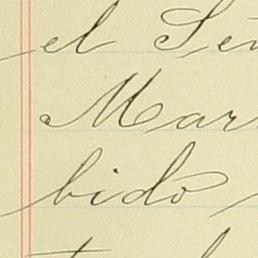 el Señ
Mar
bido